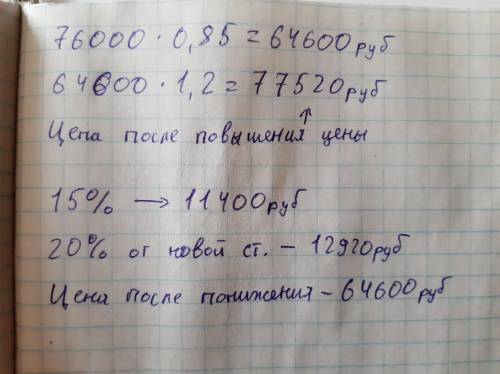 76000 · 0,85 = 64600 руб
64600 · 1,2 = 77520 руб
Цена после повышения цены
15% → 11400 руб
20% от новой ст. – 12920 руб
Цена после понижения – 64600 руб